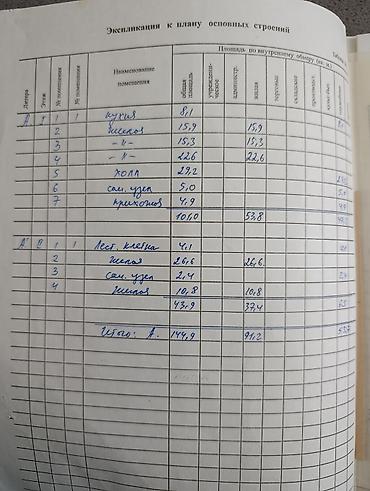 Экспликация к плану основных строений
Площадь по внутреннему обмеру (кв. м.)
Литера Этаж № помещения № помещения Наименование помещения общая площадь учрежденческое администр. жилая торговые складские производст.
А 1 1 1 кухня 8,1
2 жилая 15,9 15,9
3 -"- 15,3 15,3
4 -"- 22,6 22,6
5 холл 29,2
6 сан. узел 5,0 5,0
7 прихожая 4,9 4,9
101,0 53,8
А 2 1 1 Лест. клетка 4,1
2 жилая 26,6 26,6
3 сан. узел 2,4 2,4
4 жилая 10,8 10,8
43,9 37,4 6,5
Итого: А. 144,9 91,2 53,7